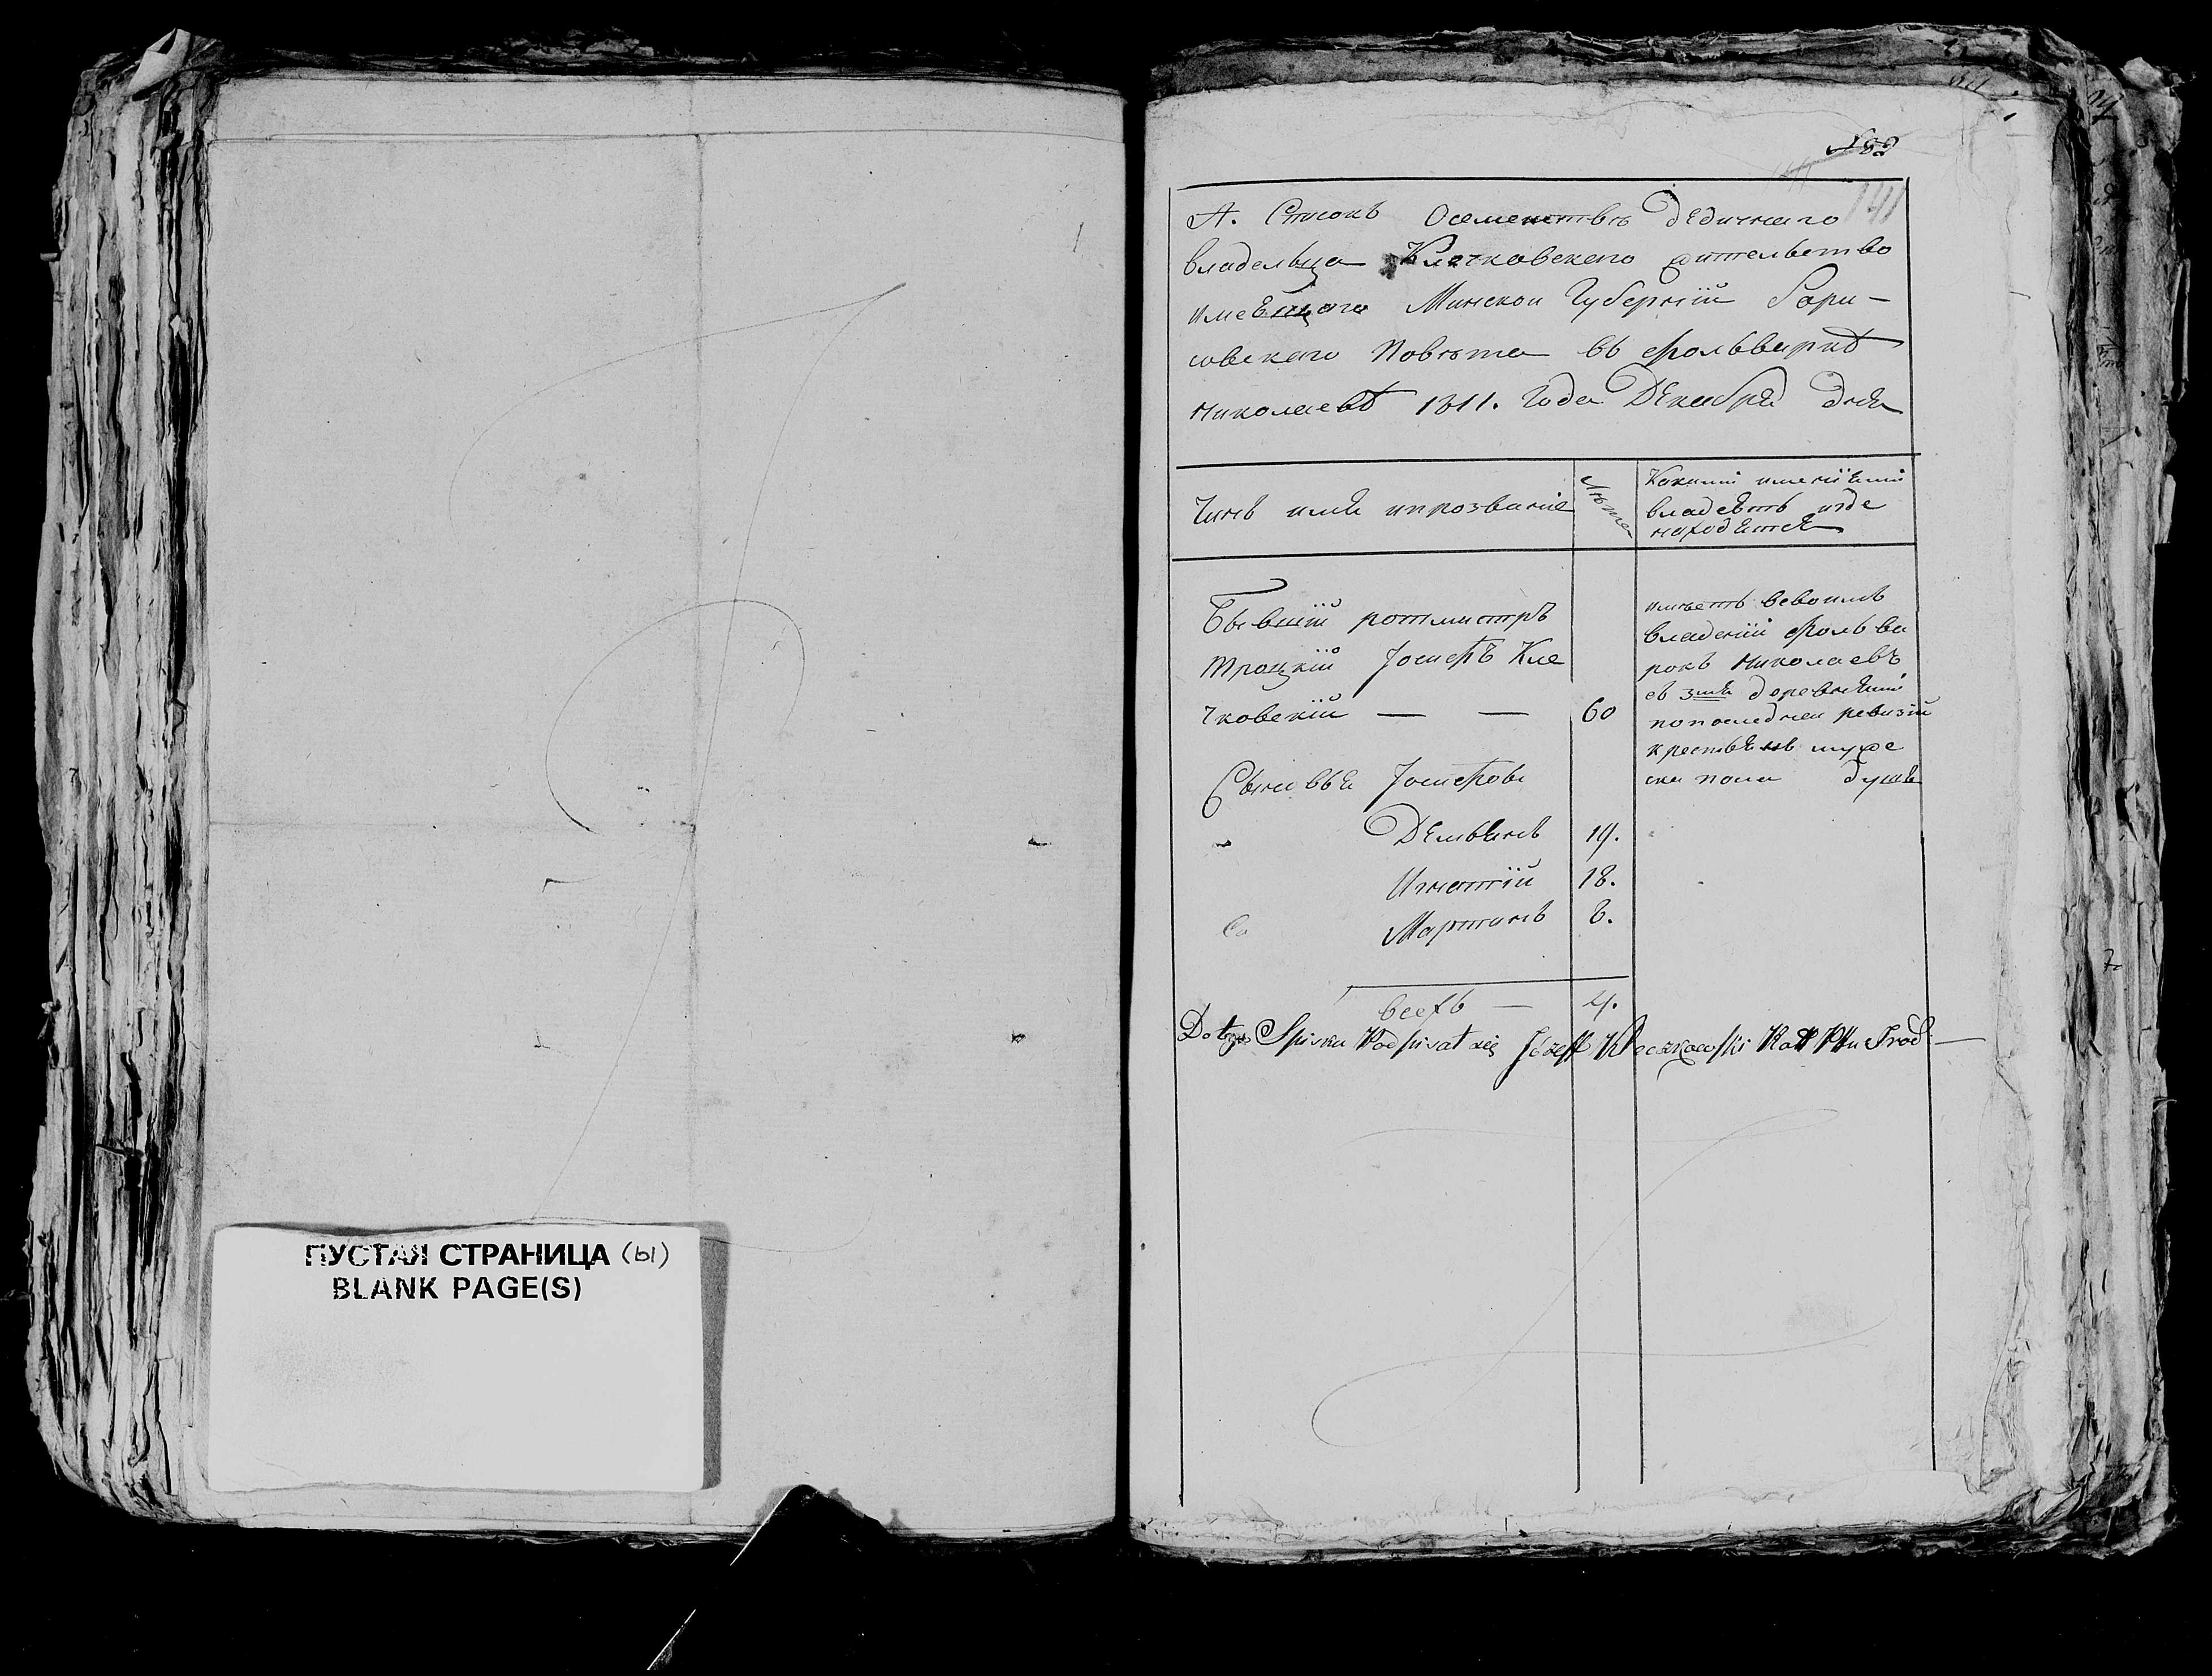 ПУСТАЯ СТРАНИЦА (ы)
BLANK PAGE(S)
141
А. Списокъ Осемействѣ дедичнаго
владельца Клечковскаго жительство
имеющаго Минской Губерніи Бори-
совскаго Повѣта въ фольварке
Николаеве 1811. Года Декабря дня
Чинъ имя ипрозваніе
Лѣта
Какими именіями
владѣетъ игде
находятся
Бывшій ротмистръ
Троцкій Іосифъ Кле
чковскій — — 60
имѣетъ всвоимъ
владеніи фольва
рокъ Николаевъ
съ деревнями
попоследней ревизіи
крестьянъ муже
ска пола душъ
Сыновья Іосифовы
Дамьянъ 19.
Игнатій 18.
Мартинъ 8.
всехъ — 4.
Do tego Spisku Podpisał się Józeff Kleczkowski Rott Pttu Trod —